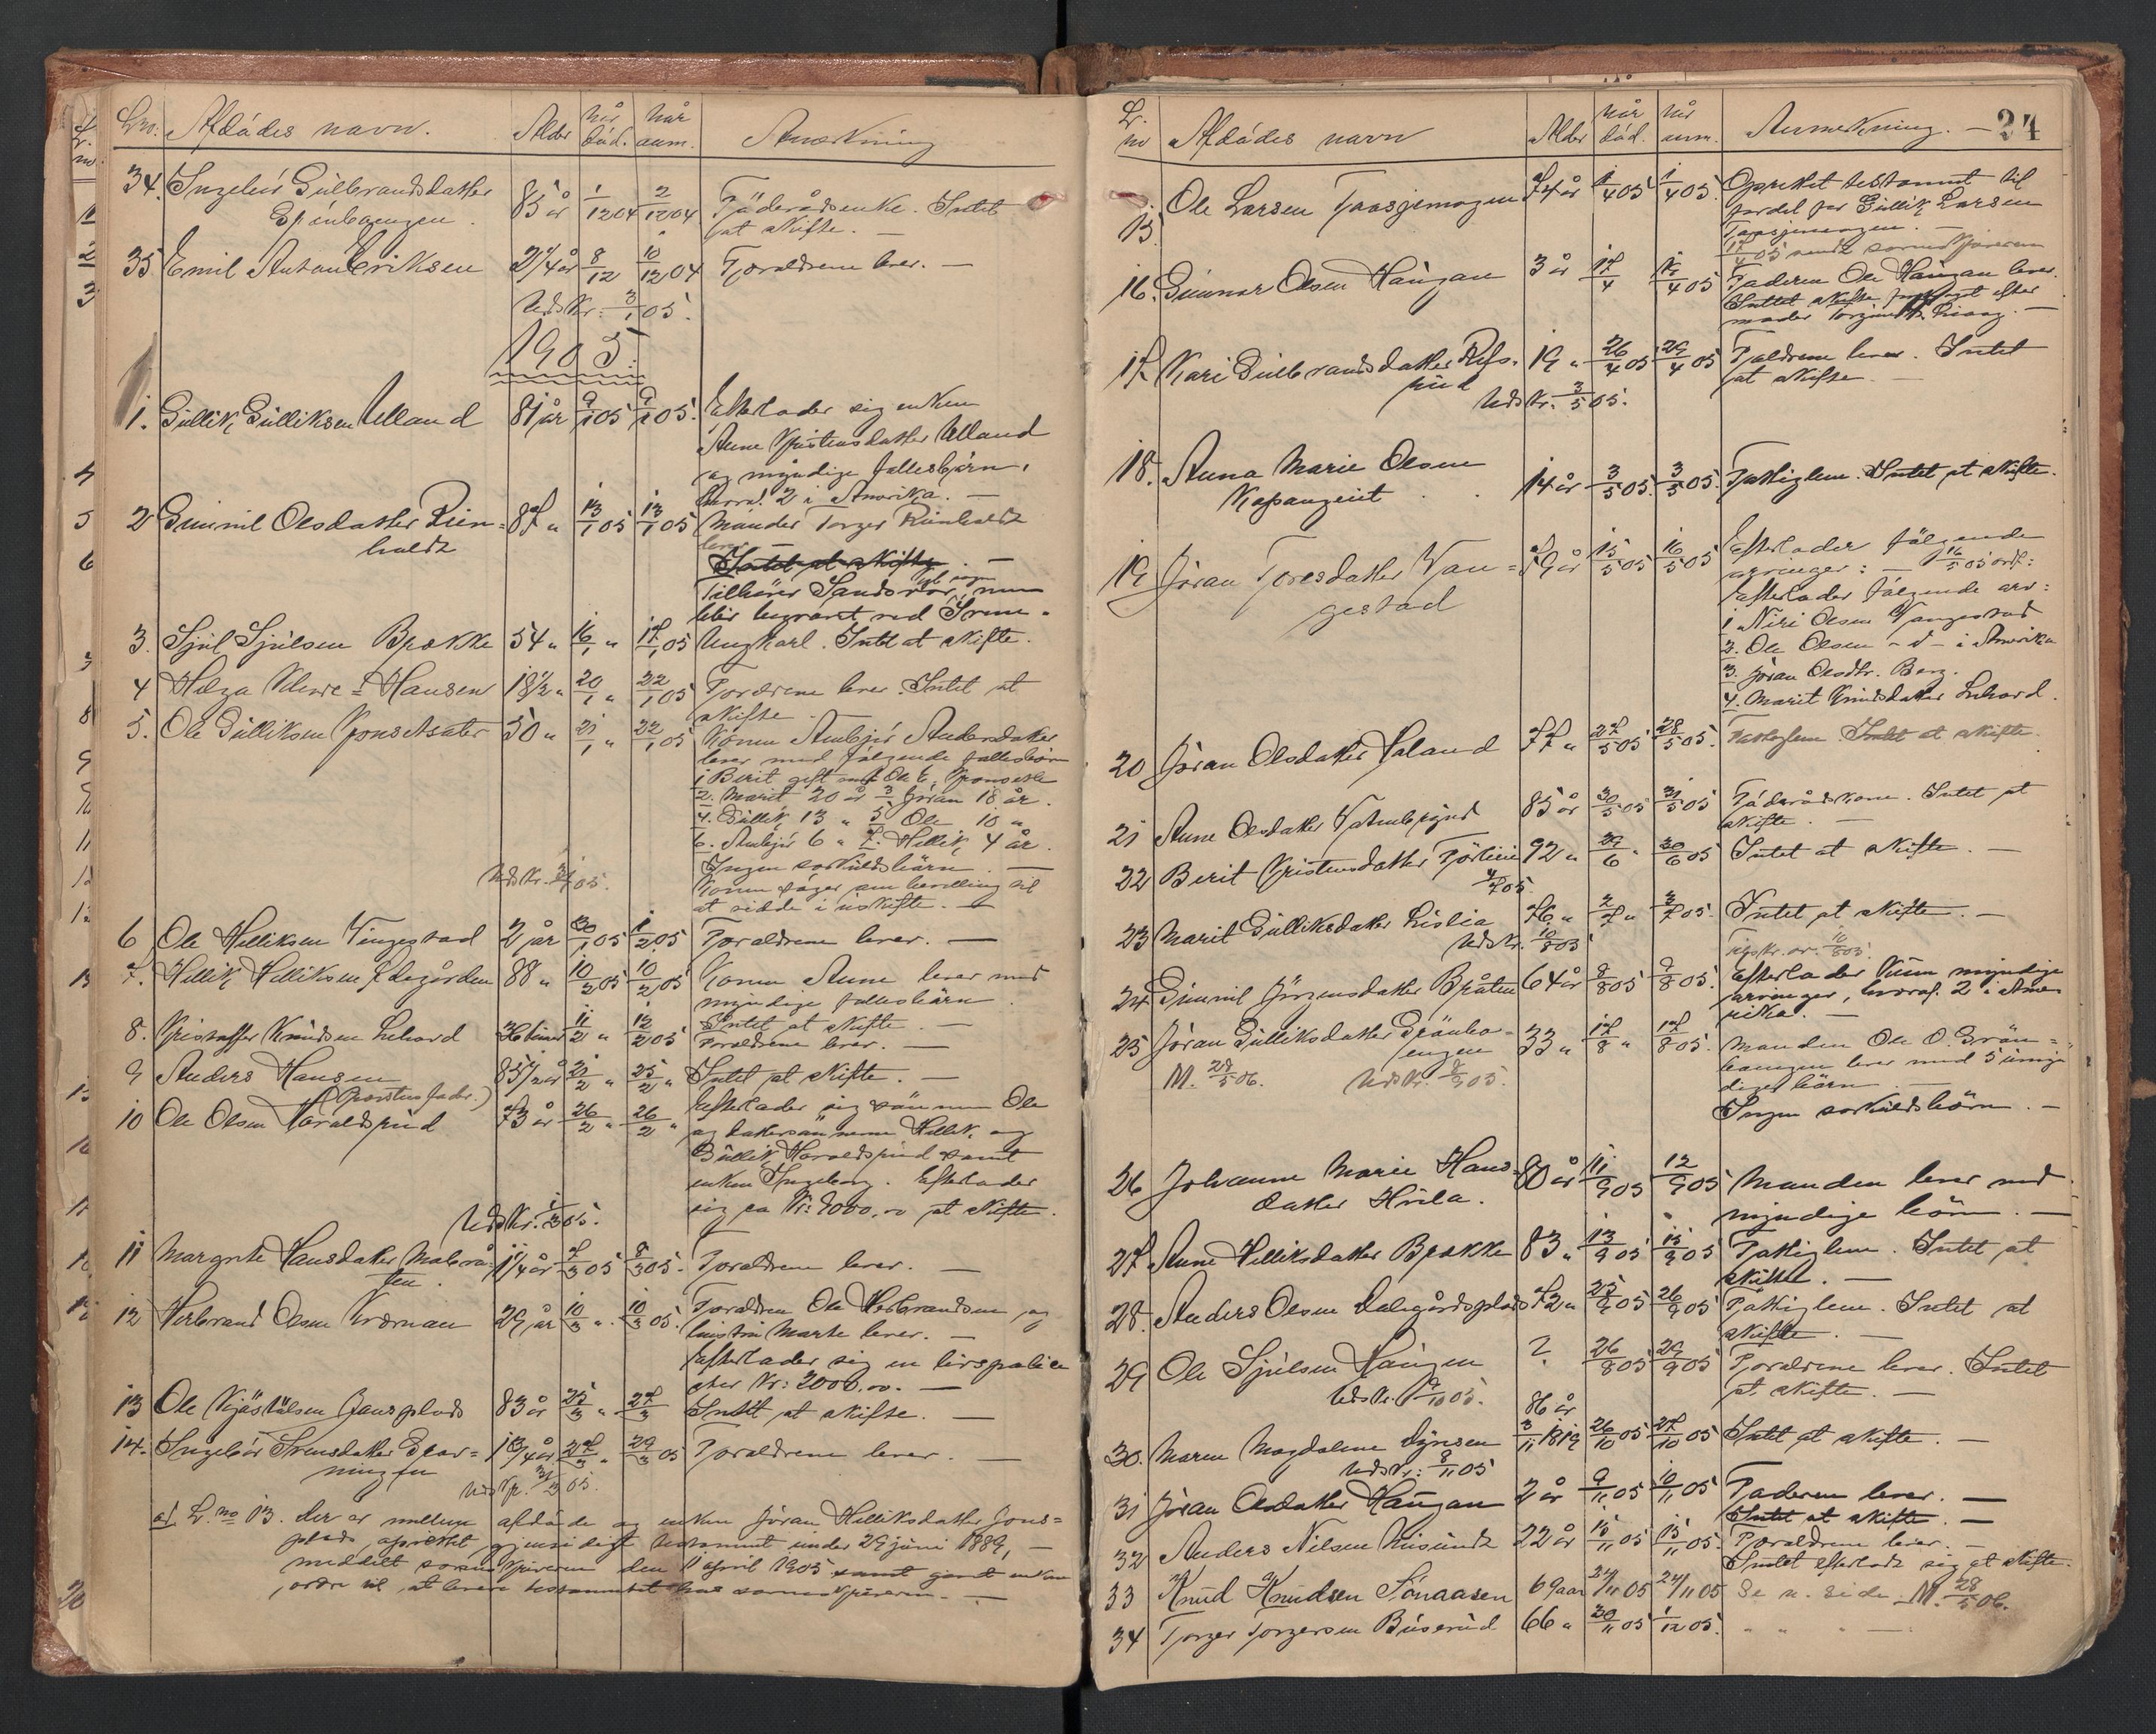 Lno. Afdødes navn. Alder Når død. Når anm. Anmerkning
34. Ingebør Gulbrandsdatter 85 år 1/12 04 2/12 04 Føderådsenke. Intet
at skifte. —
35. Emil Anton Eriksen 2 1/4 år 8/12 10/12 04 Forældrene lever. —
Uds. Kr. 3/1 05.
1905.
1. Gullik Gulliksen Ulland 81 år 9/1 05 9/1 05. Efterlader sig enken
Anne Kristensdatter Ulland
og myndige fællesbørn,
hvoraf 2 i Amerika. —
2 Gunnil Olsdatter Rien= 87 „ 13/1 05 13/1 05 Manden Torger
holdt lever
Intet at skifte. —
Tilhører Sandsvær, men
blir begravet ved Svene.
3. Sjul Sjulsen Brække 54 „ 16/1 „ 17/1 05 Ungkarl. Intet at skifte.
4 Helga Hansen 18 1/2 „ 20/1 „ 22/1 05 Forældrene lever. Intet at
skifte.
5. Ole Gulliksen 50 „ 21/1 „ 22/1 05 Konen Ambjør Andersdatter
lever med følgende fællesbørn
1 Berit gift med Ole
2. Marit 20 år 3 Jøran 18 år.
4. Gullik 13 „ 5 Ole 10 „
6. Ambjør 6 „ 7. Hellik 4 år.
Ingen særkuldsbørn. —
Uds. Kr. 05. Konen søger om bevilling til
at sidde i uskifte. —
6 Ole Helliksen Vingestad 2 år 30/1 05 1/2 05 Forældrene lever. —
7. Hellik Helliksen Ødegården 88 „ 10/2 05 10/2 05 Konen Anne lever med
myndige fællesbørn.
8. Kristoffer Knudsen Lekord 36 timer 11/2 „ 12/2 05 Intet at skifte. —
Forældrene lever. —
9 Anders Hansen 85 1/2 år 21/2 „ 25/2 „ Intet at skifte. —
10 Ole Olsen Haraldsrud 73 år 26/2 „ 26/2 „ Efterlader sig sønnen Ole
og dattersønnerne Hellik og
Gullik Haraldsrud samt
enken Ingeborg. Efterlader
Uds. Kr. 1/3 05. sig ca Kr: 9000,00 at skifte.
11 Margrete Hansdatter Mobrå= 1 1/4 år 7/3 05 8/3 05. Forældrene lever. —
ten.
12 Herbrand Olsen Kvernan 29 år 10/3 „ 10/3 05. Forældrene Ole Herbrandsen og
hustru Marte lever. —
Efterlader sig en livspolice
efter Kr: 2000,00. —
13 Ole Jonsplads 83 år 25/3 „ 27/3 Intet at skifte. —
14. Ingebør Svensdatter 1 3/4 år 27/3 „ 29/3 05 Forældrene lever. —
Uds. Kr. 31/3 05.
ad L.no 13. Der er mellem afdøde og enken Jøran Helliksdatter Jons=
plads oprettet gjensidigt testament under 29 juni 1889, —
meddelt sorenskriveren den 1 april 1905 samt givet enken
ordre til at levere testamentet hos sorenskriveren. —
24
L. no Afdødes navn Alder Når død. Når anm. Anmerkning. —
15. Ole Larsen 74 år 1/4 05 1/4 05. Oprettet testament til
fordel for Gullik Larsen
17/4 05 sendt sorenskriveren
16. Gunnar Olsen Haugan 3 år 17/4 4 05 Faderen Ole Haugan lever.
Intet skifte foretaget efter
moder
17. Kari Gulbrandsdatter Refs= 19 „ 26/4 05 29/4 05 Forældrene lever. Intet
rud at skifte. —
Uds. Kr. 3/5 05.
18. Anna Marie Olsen 14 år 3/5 05. 3/5 05. Fattiglem. Intet at skifte.
19 Jøran Toresdatter Van= 79 år 15/5 05 16/5 05 Efterlader følgende
gestad arvinger: — 16/5 05
Efterlader følgende arv:
1 Niri Olsen Vangestad
2. Ole Olsen — d — i Amerika
3. Jøran Olsdtr. Berg.
4. Marit Knudsdatter Lekord.
20 Jøran Olsdatter Føland 77 „ 27/5 05 28/5 05. Fattiglem Intet at skifte.
21 Anne Olsdatter 85 år 30/5 05 31/5 05 Føderådskone. Intet at
skifte. —
22 Berit Kristensdatter 92 „ 29/6 „ 30/6 05 Intet at skifte. —
4/7 05
23 Marit Gulliksdatter Lislia 76 „ 2/7 „ 3/7 05. Intet at skifte. —
Uds. Kr. 10/8 05
24 Gunnil Jørgensdatter Bråten 64 år 8/8 05 9/8 05. Efterlader kun myndige
arvinger, hvoraf 2 i Ame=
rika. —
25 Jøran Gulliksdatter Grønbo= 33 „ 17/8 „ 17/8 05. Manden Ole O. Grøn=
engen boengen lever med 5 umyn=
M. 28/5 06. Uds. Kr. 05. dige børn. —
Ingen særkuldsbørn. —
26 Johanne Marie Hans= 80 år 11/9 05 12/9 05 Manden lever med
datter Hvila. myndige børn. —
27 Anne Helliksdatter Brække 83 „ 13/9 05 15/9 05 Fattiglem. Intet at
skifte. —
28. Anders Olsen Dalegårdsplads 72 „ 25/9 05 26/9 05 Fattiglem. Intet at
skifte. —
29 Ole Sjulsen Haugen ? 26/8 05 29/9 05 Forældrene lever. Intet
Uds. Kr. 10 05. at skifte. —
86 år
30. Maren Magdalene Dyresen 3/11 1819 26/10 05 27/10 05 Intet at skifte. —
Uds. Kr.: 8/11 05
31 Jøran Olsdatter Haugan 2 år 9/11 05 10/11 05 Faderen lever. —
Intet at skifte. —
32 Anders Nilsen 22 år 15/11 05 15/11 05. Forældrene lever. —
Intet efterladt sig at skifte.
33 Knud Knudsen Sønaasen 69 aar 24/11 05 24/11 05 Se n. side M. 28/5 06.
34 Torger Torgersen Buserud 66 „ 30/11 05 1/12 05. „ „ „ —